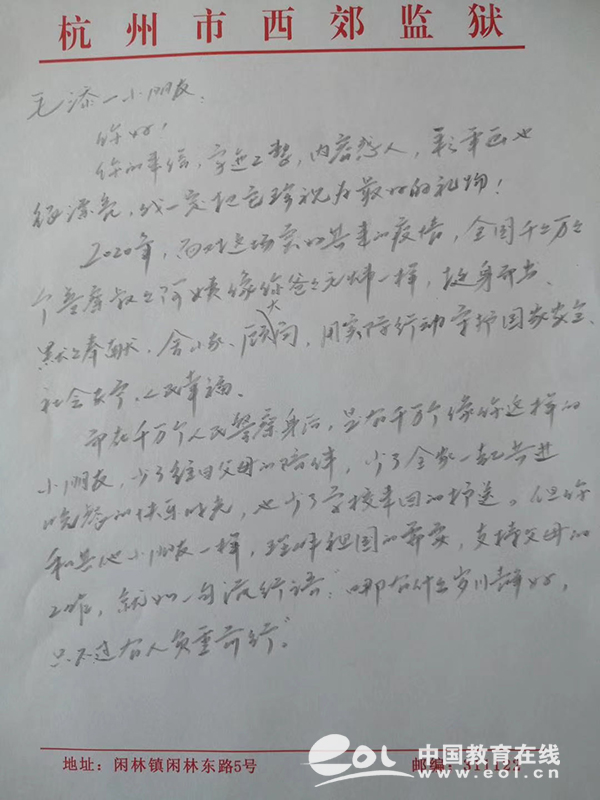 杭州市西郊监狱
毛添一小朋友:
你好!
你的来信,字迹工整,内容感人,彩笔画也
很漂亮,我一定把它珍视为最好的礼物!
2020年,面对这场突如其来的疫情,全国千千万万
个警察叔叔阿姨像你爸爸元帅一样,挺身而出、
默默奉献、舍小家、顾大国,用实际行动守护国家安全、
社会安宁、人民幸福。
而在千万个人民警察身后,是有千万个像你这样的
小朋友,少了往日父母的陪伴,少了全家一起共进
晚餐的快乐时光,也少了学校来回的护送。但你
和其他小朋友一样,理解祖国的需要,支持父母的
工作,就如一句流行语:"哪有什么岁月静好,
只不过有人负重前行。"
地址:闲林镇闲林东路5号 邮编:311122
eol 中国教育在线
www.eol.cn